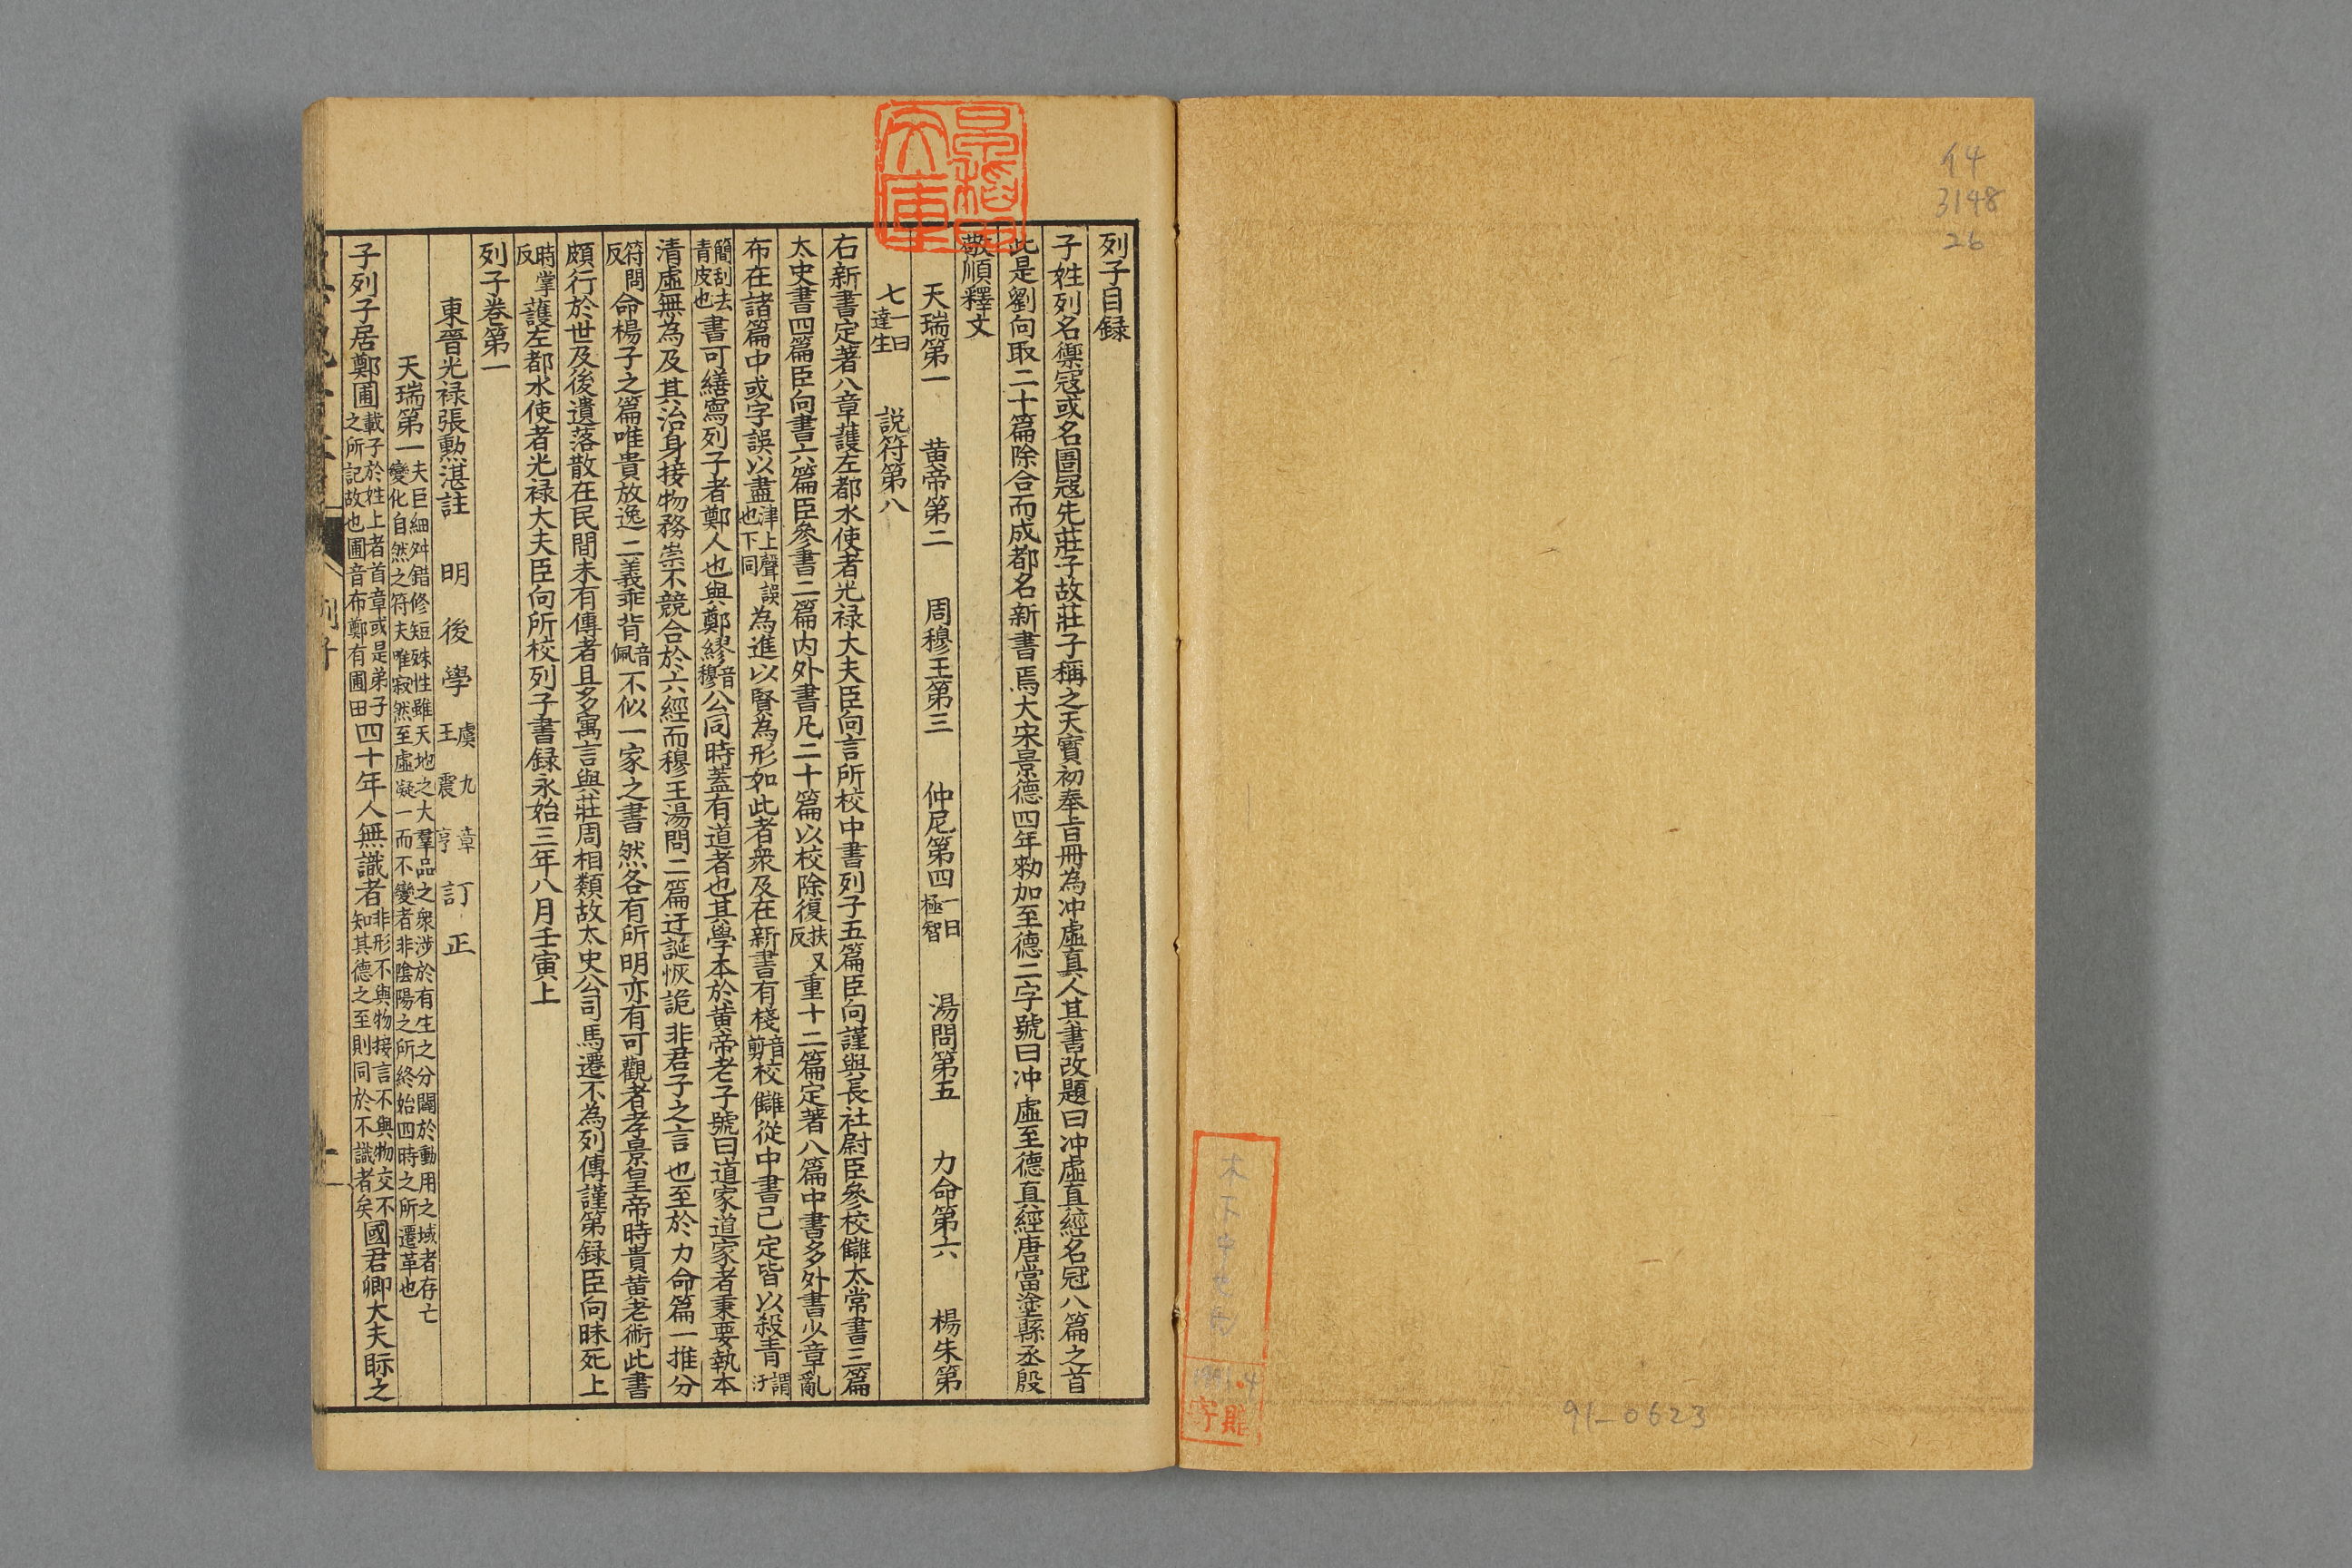 イ4
3148
26
91-0623
寄贈
列子目録
子姓列名禦寇或名圄寇先莊子故莊子稱之天寶初奉旨冊為冲虛真人其書改題曰冲虛真經名冠八篇之首
此是劉向取二十篇除合而成都名新書焉大宋景德四年勑加至德二字號曰冲虛至德真經唐當塗縣丞殷
敬順釋文
天瑞第一 黄帝第二 周穆王第三 仲尼第四一曰極智 湯問第五 力命第六 楊朱第
七一曰達生 説符第八
右新書定著八章護左都水使者光禄大夫臣向言所校中書列子五篇臣向謹與長社尉臣參校讎太常書三篇
太史書四篇臣向書六篇臣參書二篇内外書凡二十篇以校除復扶又反重十二篇定著八篇中書多外書少章亂
布在諸篇中或字誤以盡津上聲誤也下同為進以賢為形如此者衆及在新書有棧音剪校讎從中書已定皆以殺青謂汗
簡刮去青皮也書可繕寫列子者鄭人也與鄭繆音穆公同時蓋有道者也其學本於黄帝老子號曰道家道家者秉要執本
清虛無為及其治身接物務崇不競合於六經而穆王湯問二篇迂誕恢詭非君子之言也至於力命篇一推分
符問反命楊子之篇唯貴放逸二義乖背音佩不似一家之書然各有所明亦有可觀者孝景皇帝時貴黄老術此書
頗行於世及後遺落散在民間未有傳者且多寓言與莊周相類故太史公司馬遷不為列傳謹第録臣向昧死上
時掌反護左都水使者光禄大夫臣向所校列子書録永始三年八月壬寅上
列子卷第一
東晉光禄張勲湛註 明後學虞九章王震亨訂正
天瑞第一夫巨細舛錯修短殊性雖天地之大羣品之衆涉於有生之分關於動用之域者存亡變化自然之符夫唯寂然至虛凝一而不變者非陰陽之所終始四時之所遷革也
子列子居鄭圃載子於姓上者首章或是弟子之所記故也圃音布鄭有圃田四十年人無識者非形不與物接言不與物交不知其德之至則同於不識者矣國君卿大夫眎之
列子